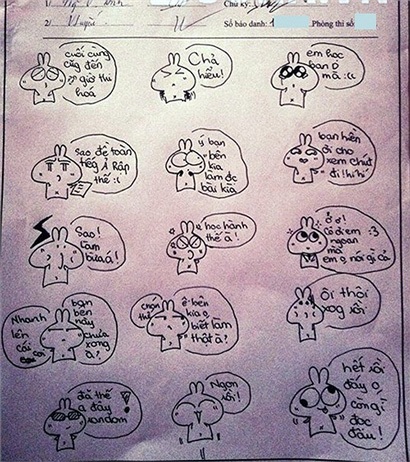 Chữ ký:
Số báo danh: 1
Phòng thi số
2/
cuối cùng
cũg đến
giờ thi
hoá
Chả
hiểu!
em học
bạn ơ
mà :((
sao đề toàn
tiếg Ả Rập
thế :(
ý bạn
bên
kia
làm đc
bài kìa
bạn hiền
ơi cho
xem chút
đi! hí hí
Sao!
Làm
bừa á!
học hành
thế à!
Ơ ơ!
Cô ơi em :3
ngoan
mà
em o nói gì cả
Nhanh
lên
cái
coi
bạn
bên
này
chưa
xong
à?
chọn
ê bên
kia o
biết làm
thật à?
ôi thôi
xog rồi
đã thế
a đây
random
Ngon
rồi!
hết rồi
đấy o
còn gì
đọc
đâu!